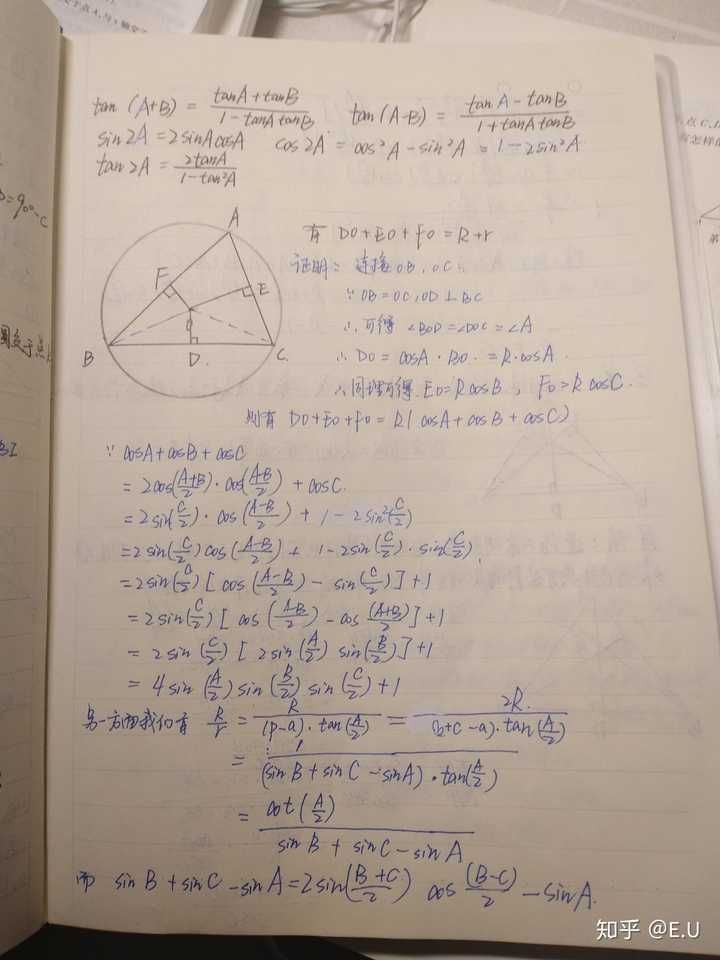 tan (A+B) = (tanA + tanB)/(1 - tanA tanB)  tan (A-B) = (tanA - tanB)/(1 + tanA tanB)
sin 2A = 2sinA cosA  cos 2A = cos²A - sin²A = 1 - 2sin²A
tan 2A = 2tanA/(1 - tan²A)
=90°-C
A
F
E
O
B
D.
C.
有 DO+EO+FO = R+r
证明: 连接OB, OC
∵ OB=OC, OD⊥BC
∴ 可得 ∠BOD=∠DOC=∠A
∴ DO = cosA·BO = R·cosA.
∴ 同理可得 EO=RcosB, FO=RcosC.
则有 DO+EO+FO = R(cosA+cosB+cosC)
∵ cosA+cosB+cosC
= 2cos((A+B)/2)·cos((A-B)/2) + cosC.
= 2sin(C/2)·cos((A-B)/2) + 1 - 2sin²(C/2)
= 2sin(C/2)cos((A-B)/2) + 1 - 2sin(C/2)·sin(C/2)
= 2sin(C/2)[cos((A-B)/2) - sin(C/2)] + 1
= 2sin(C/2)[cos((A-B)/2) - cos((A+B)/2)] + 1
= 2sin(C/2)[2sin(A/2) sin(B/2)] + 1
= 4sin(A/2)sin(B/2)sin(C/2) + 1
另一方面我们有 R/r = R/((p-a)·tan(A/2)) = 2R/((b+c-a)·tan(A/2))
= 1/((sinB + sinC - sinA)·tan(A/2))
= cot(A/2)/(sinB + sinC - sinA)
而 sinB + sinC - sinA = 2sin((B+C)/2) cos((B-C)/2) - sinA.
知乎 @E.U